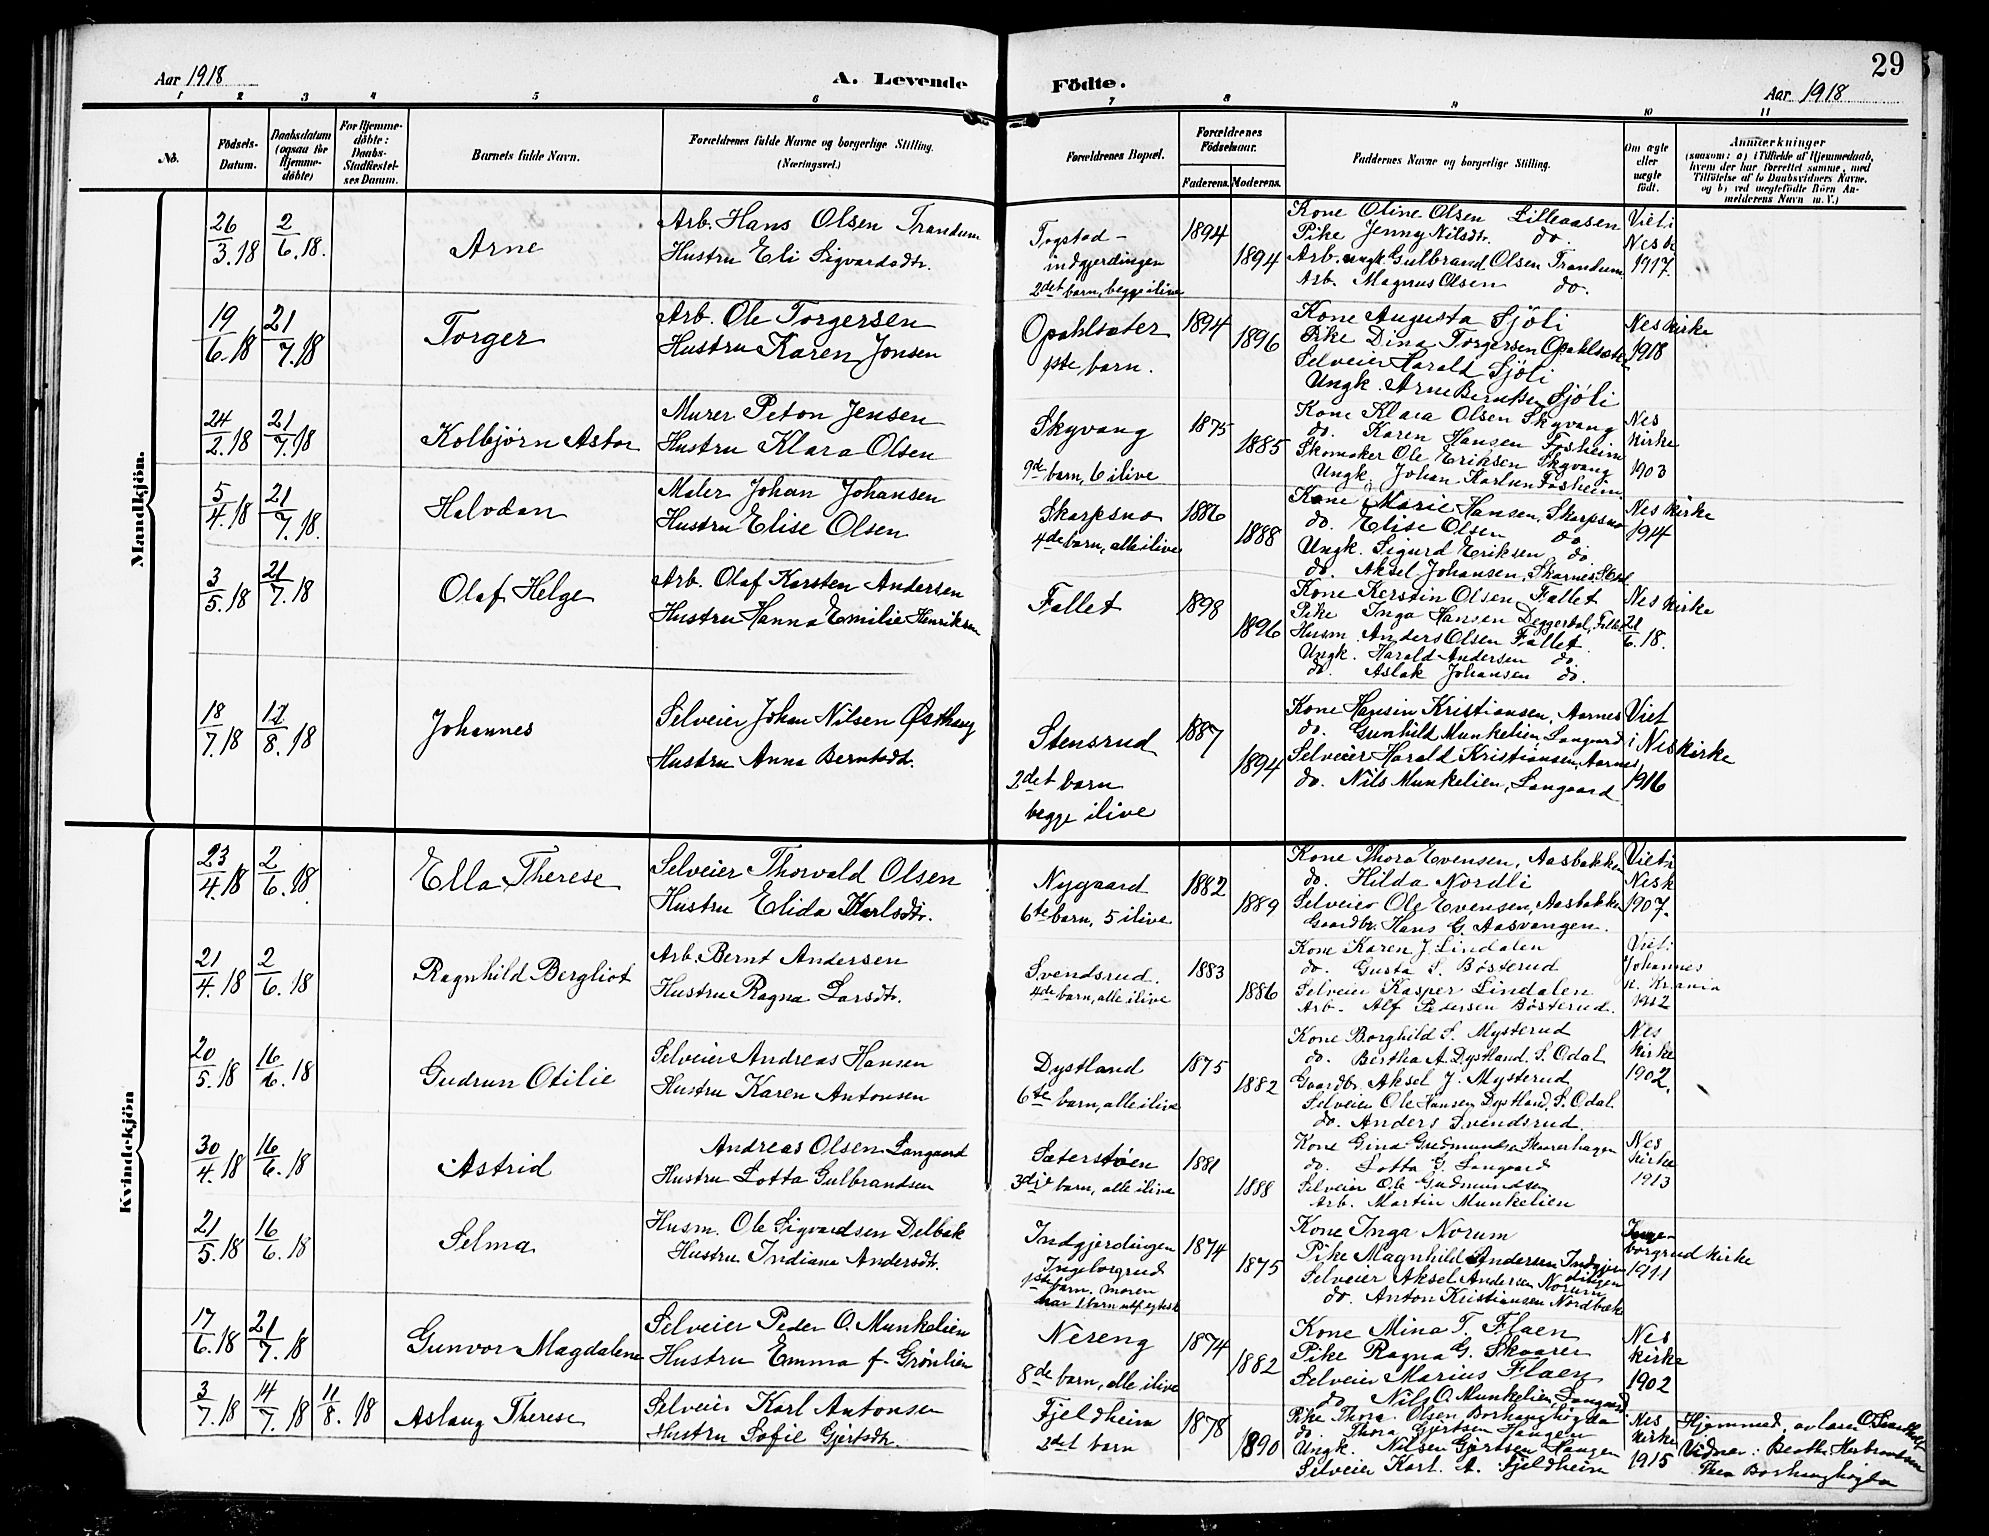 Aar 1918
A. Levende
Födte.
Aar 1918
29
1 2 3 4 5 6 7 8 9 10 11
No.
Födsels-
Datum.
Daabsdatum
(ogsaa for
Hjemme-
døbte)
For Hjemme-
døbte:
Daabs-
Stadfæstel-
ses Datum.
Barnets fulde Navn.
Forældrenes fulde Navne og borgerlige Stilling.
(Næringsvei.)
Forældrenes Bopæl.
Forældrenes
Födselsaar.
Faderens. Moderens.
Faddernes Navne og borgerlige Stilling.
Om ægte
eller
uægte
født.
Anmærkninger
(saasom: a) i Tilfælde af Hjemmedaab,
hvem der har forrettet samme, med
Tilføielse af to Daabsvidners Navne.
og b) ved uægtefödte Börn An-
melderens Navn m. V.)
Mandkjön.
26/3.18 2/6.18. Arne
Arb. Hans Olsen Trandum
Hustru Eli Sigvardsdtr.
Togstad-
indgjerdingen
2det barn, begge ilive
1894 1894
Kone Oline Olsen Lilleaasen
Pike Jenny Nilsdtr. do.
Arb. ungk Gulbrand Olsen Trandum
Arb. Magnus Olsen do.
Viet i
Nesk
1917.
19/6.18 21/7.18 Torger
Arb. Ole Torgersen
Hustru Karen Jonsen
Opahlsæter
1ste barn.
1894 1896
Kone Augusta Sjöli
Pike Dina Torgersen Opahlsæter
Selveier Harald Sjöli
Ungk. Arne Berntsen Sjöli
Nes kirke
1918
24/2.18 21/7.18 Kolbjørn Astor
Murer Peton Jensen
Hustru Klara Olsen
Skyvang
9de barn, 6 ilive
1875 1885
Kone Klara Olsen Skyvang
do. Karen Hansen Fosheim
Skomaker Ole Eriksen Skyvang
Ungk. Johan Karlsen Fosheim
Nes
kirke
1903
5/4.18 21/7.18. Halvdan
Maler Johan Johansen
Hustru Elise Olsen
Skarpsno
4de barn, alle ilive
1886 1888
Kone Marie Hansen, Skarpsno
do. Elise Olsen do
Ungk. Sigurd Eriksen do
do. Aksel Johansen, Skarnes
Nes kirke
1914
3/5.18 21/7.18 Olaf Helge
Arb. Olaf Karsten Andersen
Hustru Hanna Emilie Henriksen
Fallet
1898 1896
Kone Kerstin Olsen Fallet
Pike Inga Hansen Deggerdal, Fallet
Husm. Anders Olsen Fallet.
Ungk. Harald Andersen do.
do. Aslak Johansen do.
Nes kirke
21/6.18.
18/7.18 /8.18 Johannes
Selveier Johan Nilsen Østhaug
Hustru Anna Berntsdt.
Stensrud
2det barn
begge ilive
1887 1894
Kone Hansin Kristiansen, Aarnes
do. Gunhild Munkelien Langaard
Selveier Harald Kristiansen, Aarnes
do. Nils Munkelien, Langaard
Viet
i Nes kirke
1916
Kvindekjön
23/4.18 2/6.18 Ella Therese
Selveier Thorvald Olsen
Hustru Elida Karlsdtr.
Nygaard
6te barn, 5 ilive
1882 1889
Kone Thora Evensen, Aasbakken
do. Hilda Nordli
Selveier Ole Evensen, Aasbakken
Gaardbr. Hans G. Aasvangen.
Viet i
Nesk
1907.
21/4.18 2/6.18 Ragnhild Bergliot
Arb. Bernt Andersen
Hustru Ragna Larsdtr.
Svendsrud.
4de barn, alle ilive
1883 1886
Kone Karen J. Lindalen
do. Gusta S. Bösterud
Selveier Kasper Lindalen
Arb. Alf Pedersen Bösterud.
Viet i
Johannes
k. Krania
1902
20/5.18 16/6.18 Gudrun Otilie
Selveier Andreas Hansen
Hustru Karen Antonsen
Dystland
6te barn, alle ilive
1875 1882
Kone Borghild S. Mysterud
do. Bertha A. Dystland. S. Odal
Gaardbr. Aksel J. Mysterud
Selveier Ole Hansen Dystland, S. Odal.
do. Anders Svendsrud.
Nes
kirke
1902.
30/4.18 16/6.18 Astrid
Andreas Olsen Langaard
Hustru Lotta Gulbrandsen
Sæterstöen
3die barn, alle ilive
1881 1888
Kone Gina Gudmundsen Skaarerhagen
do. Lotta G. Langaard
Selveier Ole Gudmundsen
Arb. Martin Munkelien
Nes
kirke
1913
21/5.18 16/6.18 Selma
Husm. Ole Sigvardsen Delbak
Hustru Indiana Andersdtr.
Indgjerdingen
Ingeborgrud
1ste barn, moren
har 1 barn utf. egtesk
1874 1875
Kone Inga Norum
Pike Magnhild Andersen Indgjerdingen
Selveier Aksel Andersen Norum
do. Anton Kristiansen Nordbæk
Inge-
borgrud kirke
1911
17/6.18 21/7.18 Gunvor Magdalene
Selveier Peder O. Munkelien
Hustru Emma f. Grönlien
Nereng
8de barn, alle ilive
1874 1882
Kone Mina T. Flaen
Pike Ragna G. Skaarer
Selveier Marius Flaen
do Nils O. Munkelien, Langaard
Nes
kirke
1902
3/7.18 14/7.18 11/8.18 Aslaug Therese
Selveier Karl Antonsen
Hustru Sofie Gjertsdtr.
Fjeldheim
2det barn
1878 1890
Pike Thora Olsen Borhaughögda
do. Thora Gjertsen Haugen
Ungk. Nilsen Gjertsen Haugen
Selveier Karl. A. Fjeldheim
Nes
kirke
1915
Hjemmed. av lærer O.
Vidner: Beathe Herbrandsen
Thea Borhaughögda